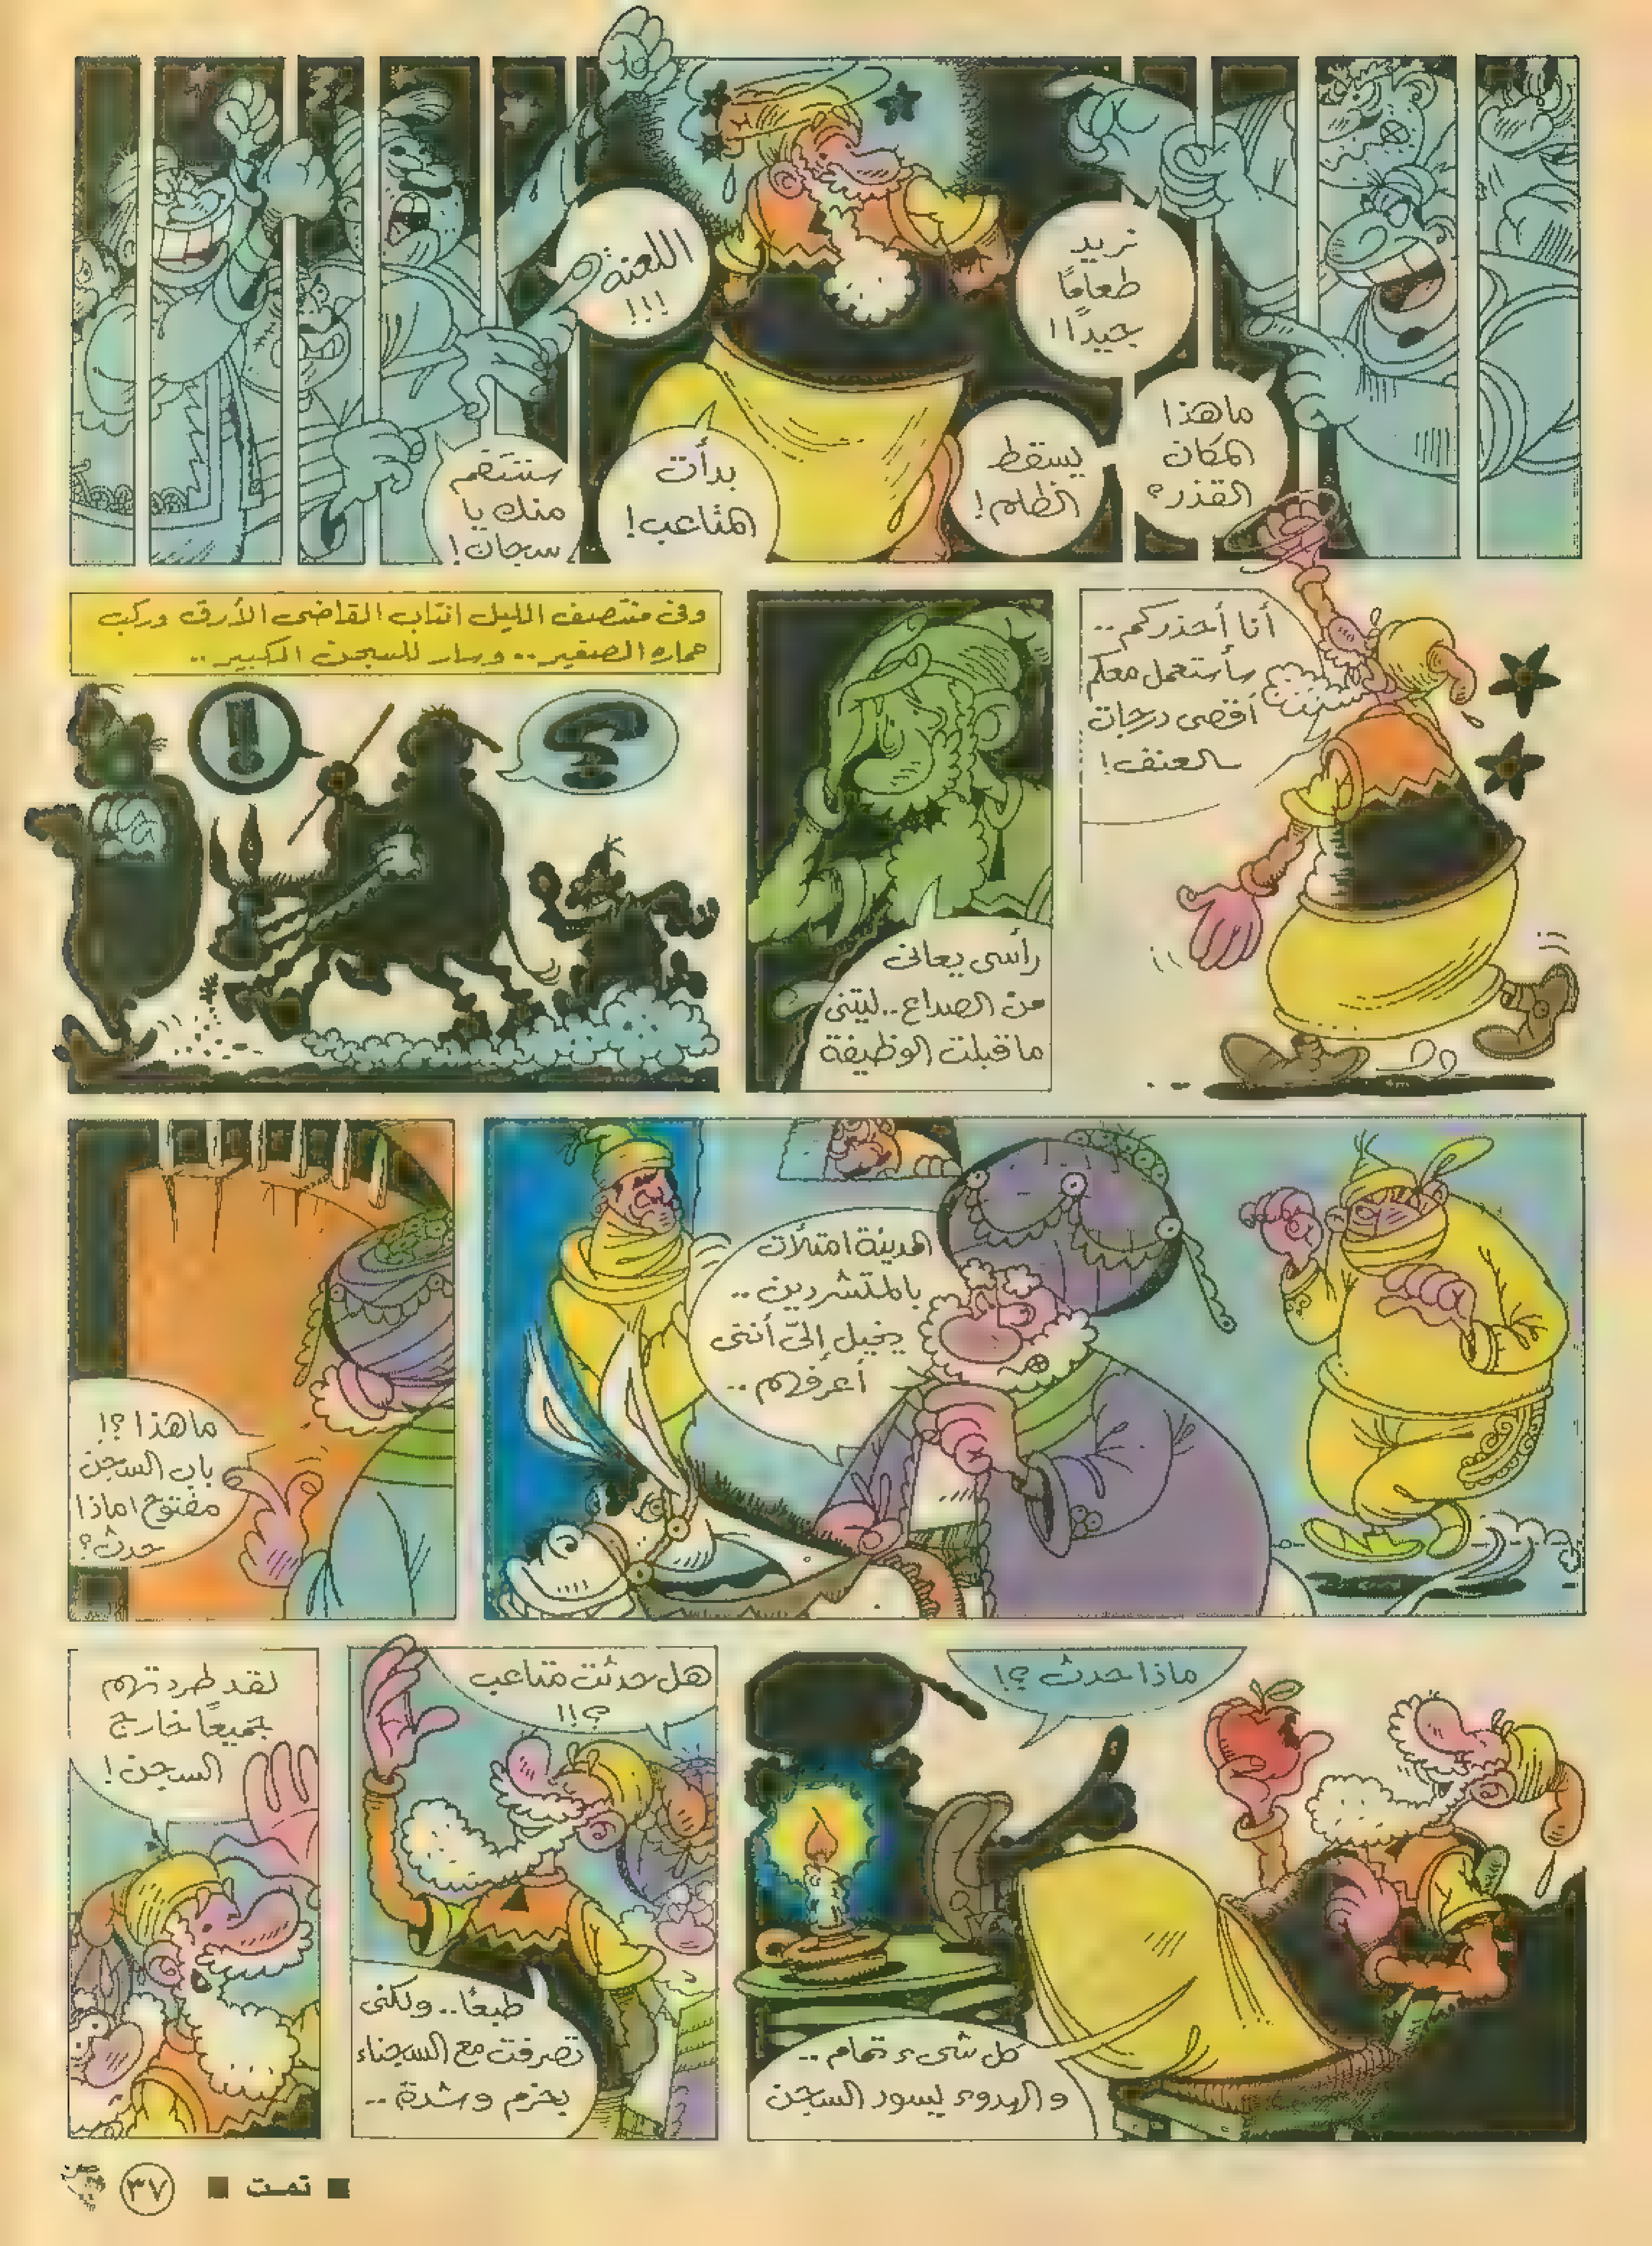 نريد
طعامًا
جيدًا!
ما هذا
المكان
القذر؟
يسقط
الظلم!
اللعنة
!!!
بدأت
المتاعب!
سننتقم
منك يا
سجان!
أنا أحذركم..
سأستعمل معكم
أقصى درجات
العنف!
رأسى يعانى
من الصداع.. ليتنى
ما قبلت الوظيفة
وفى منتصف الليل انتاب القاضى الأرق وركب
حماره الصغير.. وسار للسجن الكبير..
؟
!
المدينة امتلأت
بالمتشردين..
يخيل إلىّ أننى
أعرفهم..
ما هذا؟!
باب السجن
مفتوح! ماذا
حدث؟
ماذا حدث؟!
كل شىء تمام..
والهدوء يسود السجن
هل حدثت متاعب
؟!!
طبعًا.. ولكنى
تصرفت مع السجناء
بحزم وشدة..
لقد طردتهم
جميعًا خارج
السجن!
■ تمت ■
٣٧